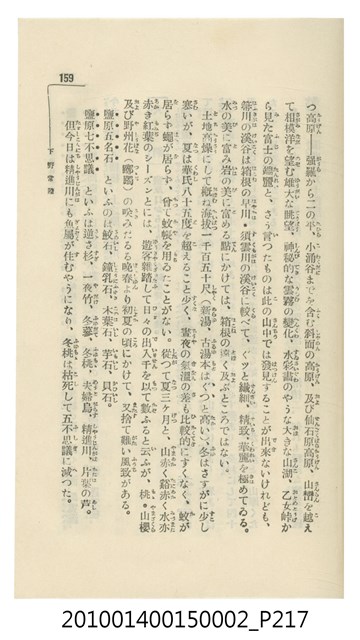 159
下野常陸
つ高原――強羅から二の平、小涌谷までを含む斜面の高原、及び仙石原高原、山巒を越え
て相模洋を望む雄大な眺望、神秘的な雲霧の變化、水彩畫のやうな大きな山湖、乙女峠か
ら見た富士の鐘麗と、さう言つたものは此の山中では發見することが出來ないけれども、
箒川の溪谷は箱根の早川・須雲川の溪谷に較べて、ぐツと纖細、精致、華麗を極めてゐる。
水の美に富み岩の美に富める點にかけては、箱根の遠く及ぶところではない。
土地高燥にして概ね海拔一千百五十尺（新湯・古湯本はぐつと高い）、冬はさすがに少し
寒いが、夏は華氏八十五度を超えること少く、晝夜の氣溫の差も比較的にすくなく、蚊が
居らず蠅が居らず、曾て蚊帳を用ゐたことがない。從つて夏三ケ月と、山赤く谿赤く水亦
赤き紅葉のシーズンとには、遊客雜踏して日々の出入千を以て數ふると云ふが、桃・山櫻
及び野州花（躑躅）の咲みだるる晩春より初夏の頃にかけて、又捨て難い風致がある。
鹽原五名石　といふのは鮫石、鐘乳石、木葉石、芋石、貝石。
鹽原七不思議　といふは逆さ杉、一夜竹、冬蓼、冬桃、夫婦烏、精進川、片葉の蘆。
但今日は精進川にも魚屬が住むやうになり、冬桃は枯死して五不思議に減つた。
201001400150002_P217